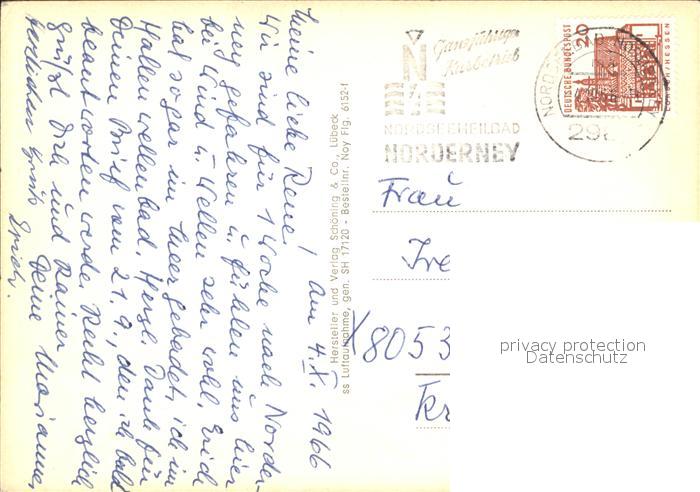 am 4. X. 1966
Meine liebe Rene!
Wir sind für 1 Woche nach Norder-
ney gefahren u. fühlen uns hier
bei Wind u. Wellen sehr wohl. Erich
hat sogar im Meer gebadet, ich im
Hallenwellenbad. Herzl. Dank für
Deinen Brief vom 21.9., den ich bald
beantworten werde. Recht herzlich
grüßt Dich und Rainer
Deine Marianne
herzlichen Gruß Erich.
Hersteller und Verlag Schöning & Co., Lübeck
ss Luftaufnahme, gen. SH 17120 - Bestellnr. Noy Flg. 6152-1
Ganzjähriger
Kurbetrieb
N
NORDSEEHEILBAD
NORDERNEY
DEUTSCHE BUNDESPOST
20
LORSCH/HESSEN
Frau
Ire
X 8053
Kr
privacy protection
Datenschutz